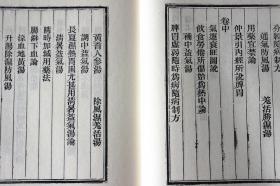 分經隨病制方
通氣防風湯　羌活勝濕湯
用藥宜禁論
仲景引內經所說脾胃
卷中
氣運衰旺圖說
飲食勞倦所傷始爲熱中論
補中益氣湯
脾胃虛弱隨時爲病隨病制方
黃耆人參湯　除風濕羌活湯
調中益氣湯
長夏濕熱胃困尤甚用清暑益氣湯論
清暑益氣湯
隨時加減用藥法
腸澼下血論
涼血地黃湯
升陽除濕防風湯